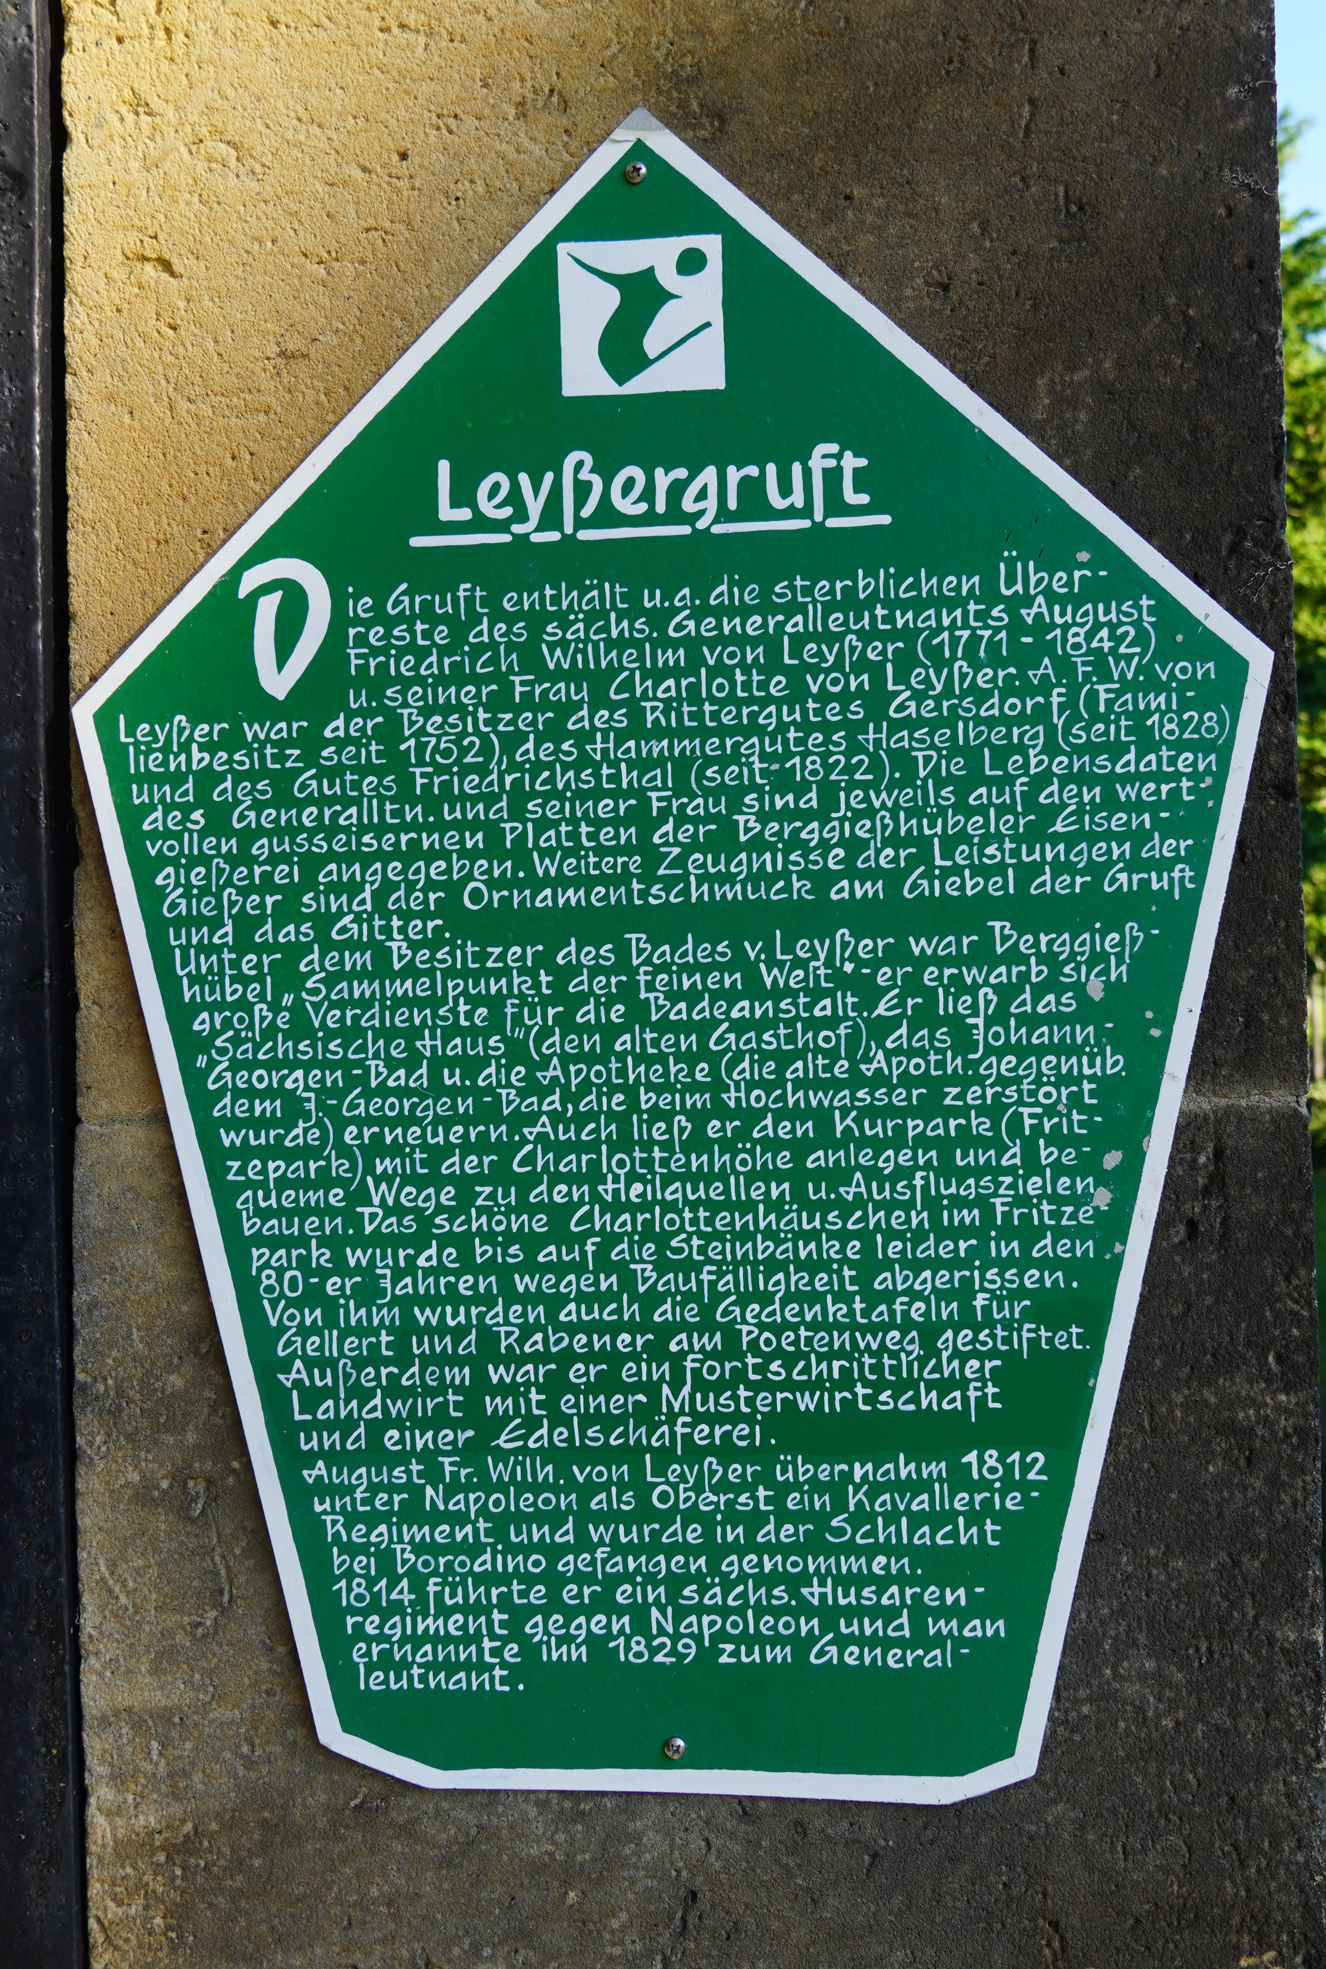 Leyßergruft
Die Gruft enthält u.a. die sterblichen Über-
reste des sächs. Generalleutnants August
Friedrich Wilhelm von Leyßer (1771 - 1842)
u. seiner Frau Charlotte von Leyßer. A. F. W. von
Leyßer war der Besitzer des Rittergutes Gersdorf (Fami-
lienbesitz seit 1752), des Hammergutes Haselberg (seit 1828)
und des Gutes Friedrichsthal (seit 1822). Die Lebensdaten
des Generalltn. und seiner Frau sind jeweils auf den wert-
vollen gusseisernen Platten der Berggießhübeler Eisen-
gießerei angegeben. Weitere Zeugnisse der Leistungen der
Gießer sind der Ornamentschmuck am Giebel der Gruft
und das Gitter.
Unter dem Besitzer des Bades v. Leyßer war Berggieß-
hübel „Sammelpunkt der feinen Welt“ - er erwarb sich
große Verdienste für die Badeanstalt. Er ließ das
„Sächsische Haus“ (den alten Gasthof), das Johann-
Georgen-Bad u. die Apotheke (die alte Apoth. gegenüb.
dem J.-Georgen-Bad, die beim Hochwasser zerstört
wurde) erneuern. Auch ließ er den Kurpark (Frit-
zepark) mit der Charlottenhöhe anlegen und be-
queme Wege zu den Heilquellen u. Ausflugszielen
bauen. Das schöne Charlottenhäuschen im Fritze-
park wurde bis auf die Steinbänke leider in den
80-er Jahren wegen Baufälligkeit abgerissen.
Von ihm wurden auch die Gedenktafeln für
Gellert und Rabener am Poetenweg gestiftet.
Außerdem war er ein fortschrittlicher
Landwirt mit einer Musterwirtschaft
und einer Edelschäferei.
August Fr. Wilh. von Leyßer übernahm 1812
unter Napoleon als Oberst ein Kavallerie-
Regiment und wurde in der Schlacht
bei Borodino gefangen genommen.
1814 führte er ein sächs. Husaren-
regiment gegen Napoleon und man
ernannte ihn 1829 zum General-
leutnant.